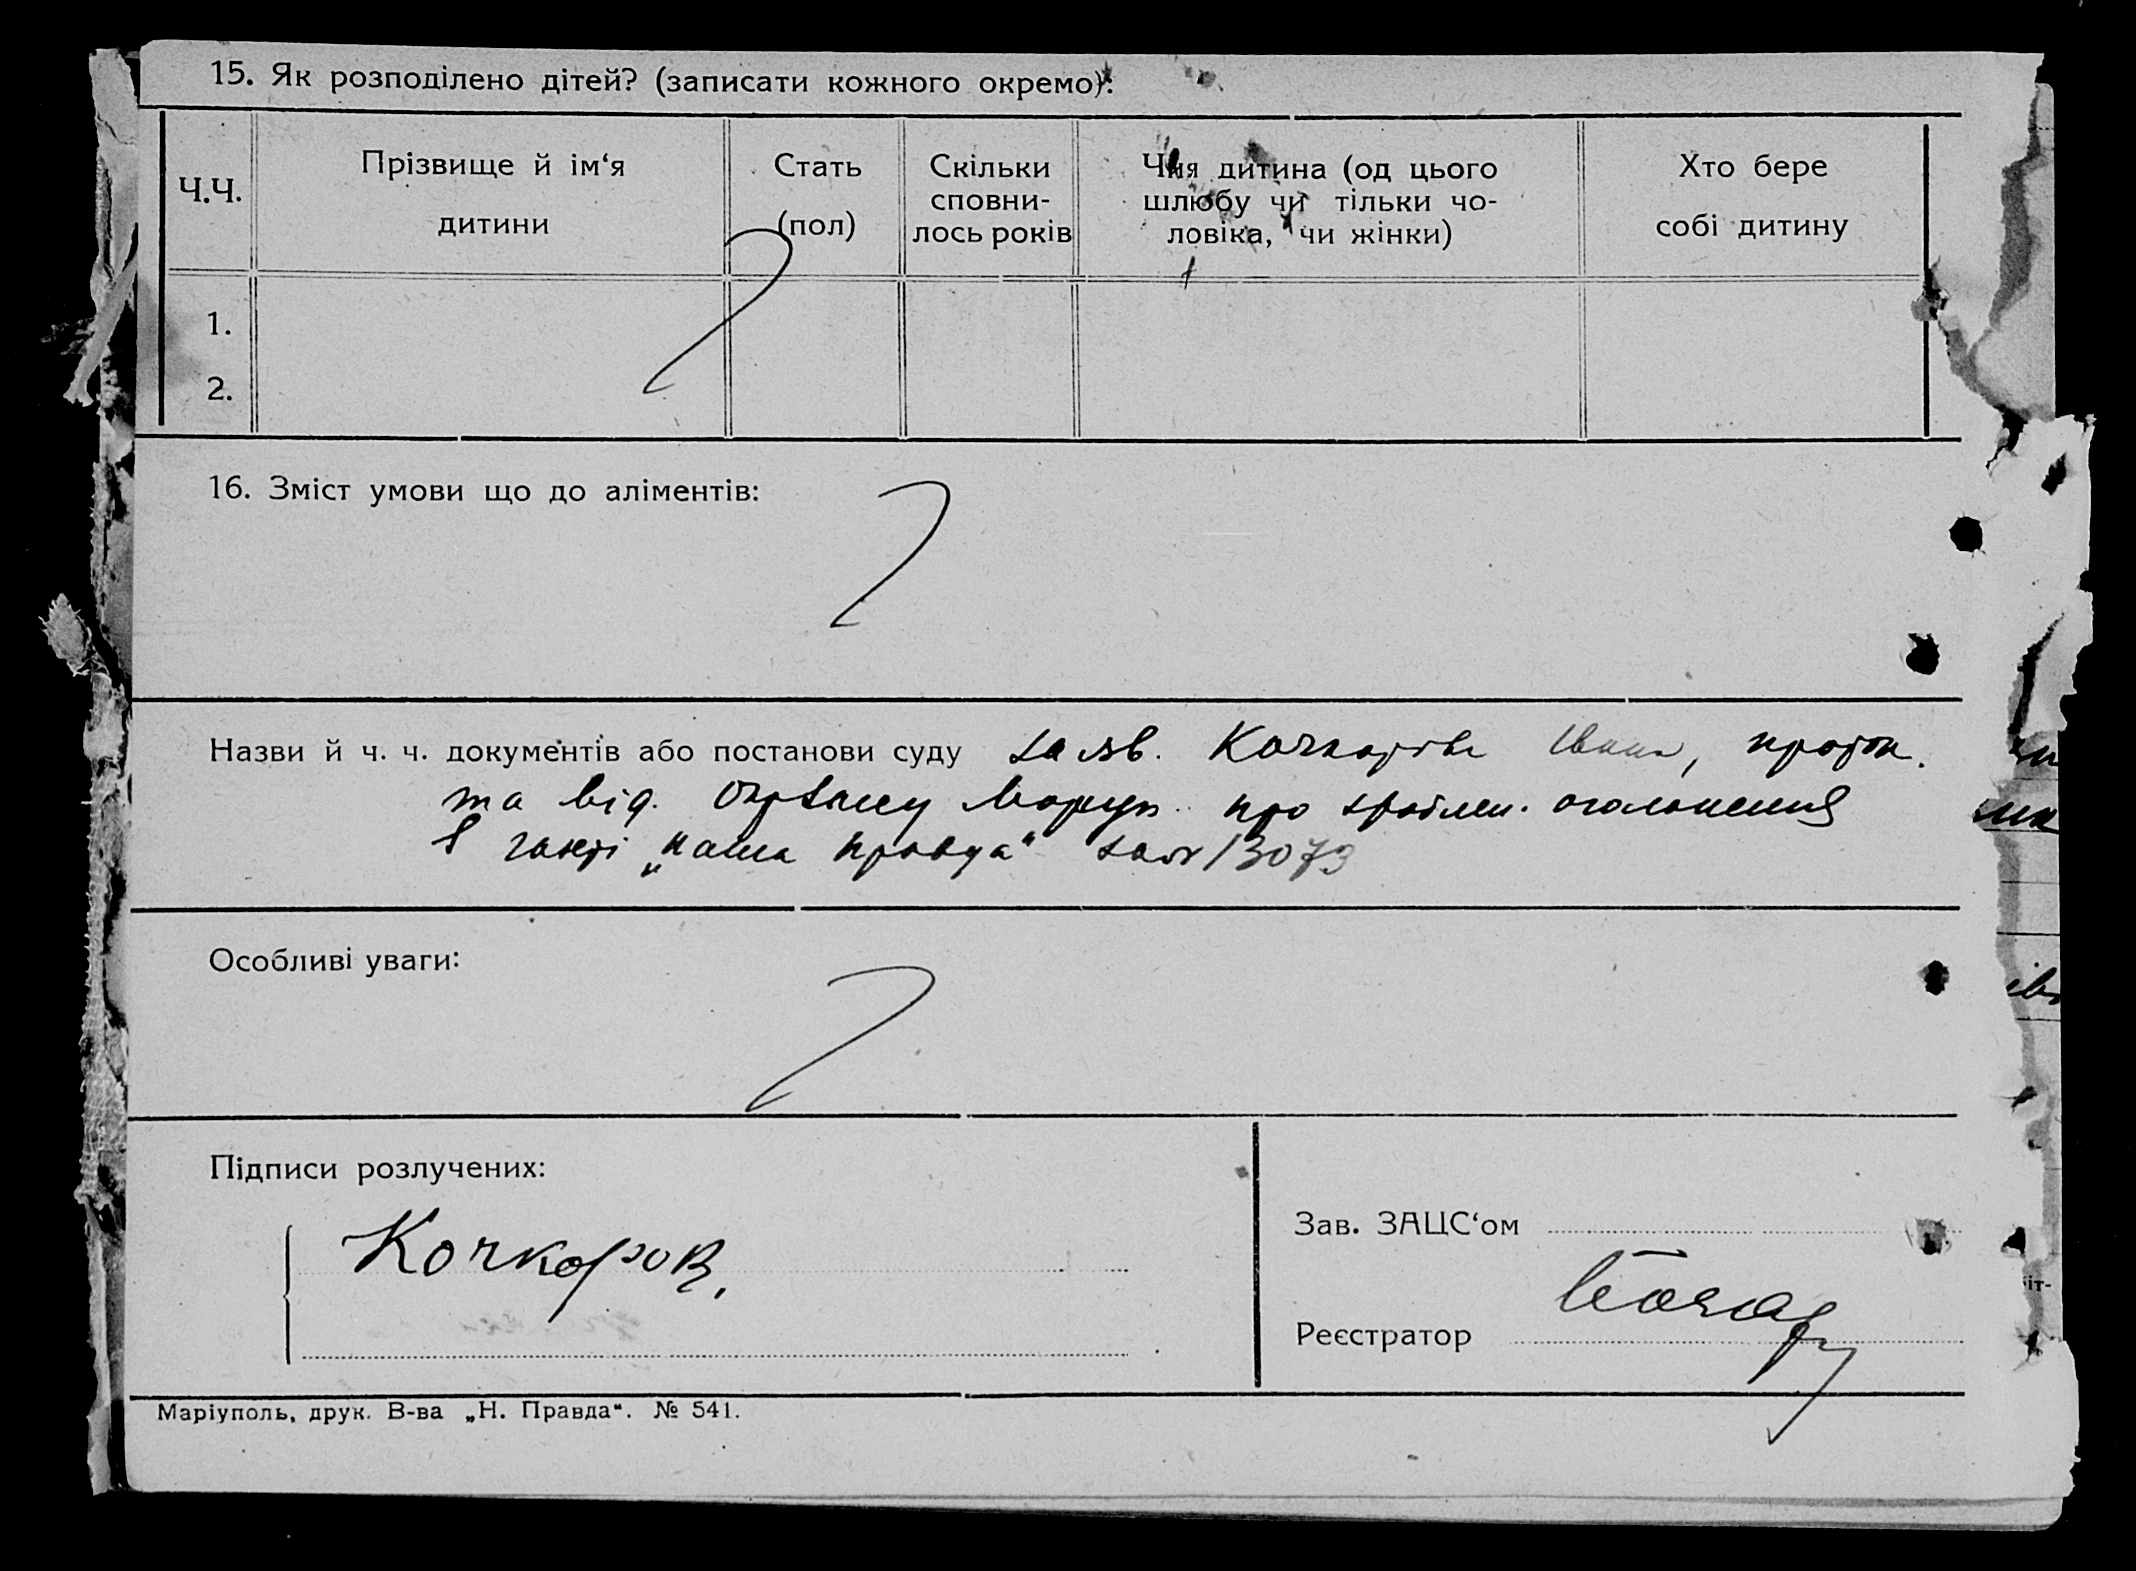 15. Як розподілено дітей? (записати кожного окремо):
Ч.Ч.
Прізвище й ім‘я
дитини
Стать
(пол)
Скільки
сповни-
лось років
Чия дитина (од цього
шлюбу чи тільки чо-
ловіка, чи жінки)
Хто бере
собі дитину
1.
2.
16. Зміст умови що до аліментів:
Назви й ч. ч. документів або постанови суду заяв. Івана,
та від. про оголошення
в „Наша правда“
Особливі уваги:
Підписи розлучених:
Кочкоров.
Зав. ЗАЦС‘ом
Реєстратор
Маріуполь, друк. В-ва „Н. Правда“. № 541.
іт-